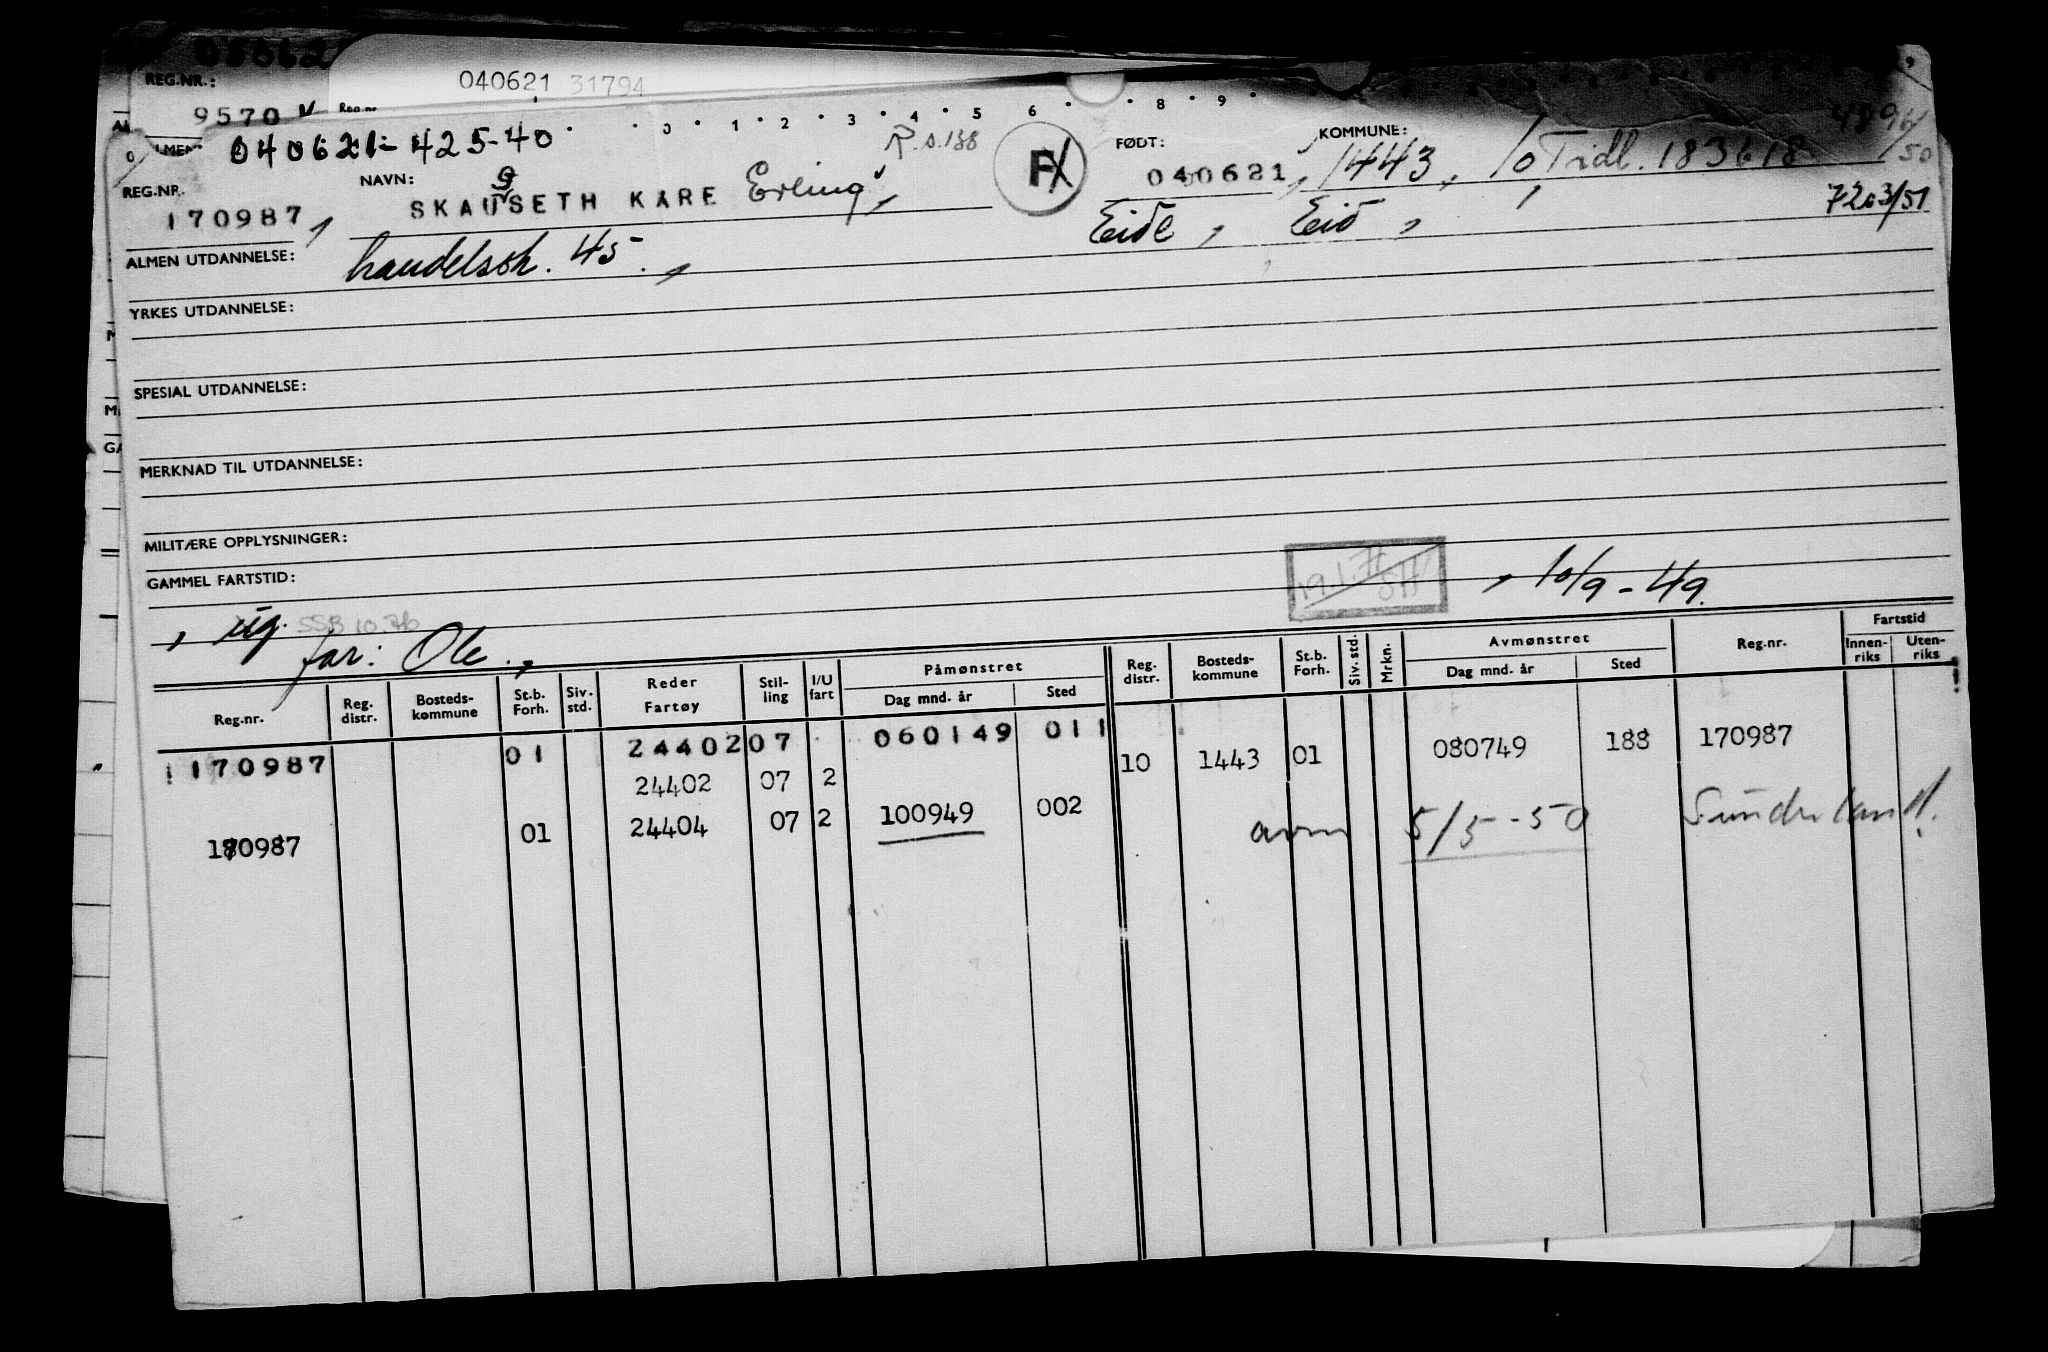 REG.NR.:
9570
040621 31794
Reg.nr.
0 1 2 3 4 5 6 8 9
040621-425-40
R.s.188
F
FØDT:
040621
KOMMUNE:
1443, 10 Tidl. 183618
4896/50
7203/51
REG.NR.
170987,
NAVN:
SKAUSETH KARE Erling,
g
Eide, Eid,
ALMEN UTDANNELSE:
handelssk. 45.,
YRKES UTDANNELSE:
SPESIAL UTDANNELSE:
MERKNAD TIL UTDANNELSE:
MILITÆRE OPPLYSNINGER:
GAMMEL FARTSTID:
, 10/9-49.
, ug. SSB 10.76
far: Ole.,
Reg.nr. Reg. distr. Bosteds-kommune St.b. Forh. Siv. std. Reder Fartøy Stil-ling I/U fart Påmønstret Dag mnd. år Sted Reg. distr. Bosteds-kommune St.b. Forh. Siv. std. Mrkn. Avmønstret Dag mnd. år Sted Reg.nr. Fartstid Innen-riks Uten-riks
170987 01 24402 07 060149 011 10 1443 01 080749 188 170987
24402 07 2
170987 01 24404 07 2 100949 002 avm 5/5-50 Sunderland!